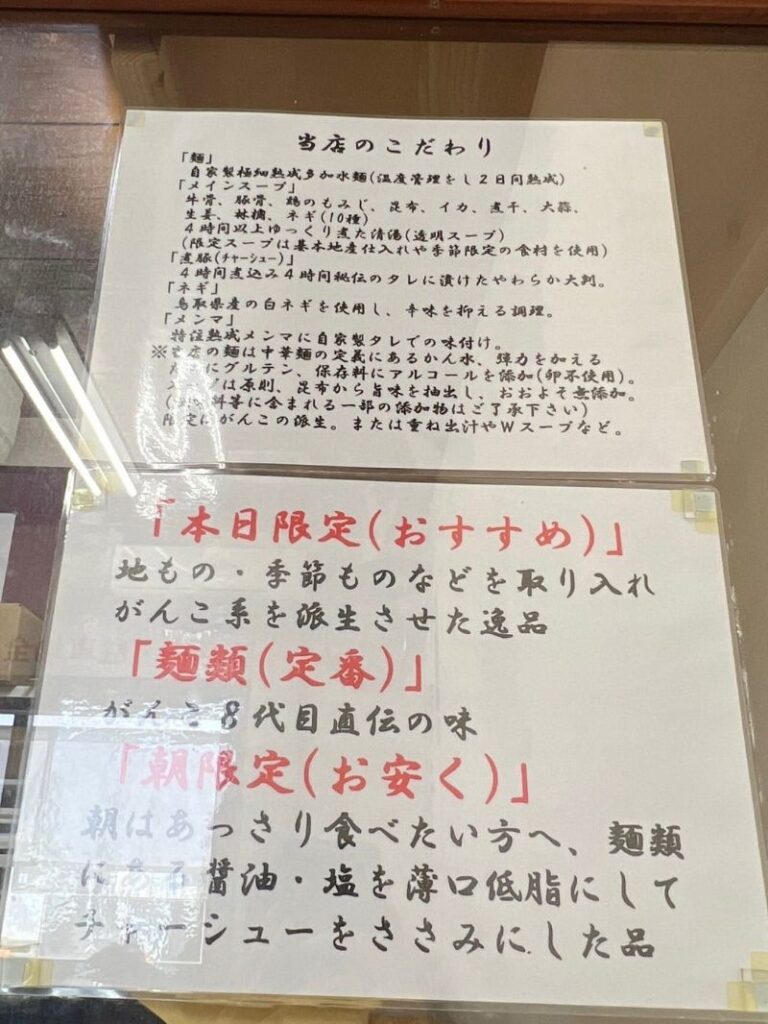 当店のこだわり
「麺」
自家製極細熟成多加水麺(温度管理をし２日間熟成)
「メインスープ」
牛骨、豚骨、鶏のもみじ、昆布、イカ、煮干、大蒜、
生姜、林檎、ネギ(10種)
４時間以上ゆっくり煮た清湯(透明スープ)
(限定スープは基本地産仕入れや季節限定の食材を使用)
「煮豚(チャーシュー)」
４時間煮込み４時間秘伝のタレに漬けたやわらか大判。
「ネギ」
鳥取県産の白ネギを使用し、辛味を抑える調理。
「メンマ」
特注熟成メンマに自家製タレでの味付け。
※当店の麺は中華麺の定義にあるかん水、弾力を加える
ためにグルテン、保存料にアルコールを添加(卵不使用)。
スープは原則、昆布から旨味を抽出し、おおよそ無添加。
料等に含まれる一部の添加物はご了承下さい)
限定はがんこの派生。または重ね出汁やＷスープなど。
「本日限定(おすすめ)」
地もの・季節ものなどを取り入れ
がんこ系を派生させた逸品
「麺類(定番)」
がんこ８代目直伝の味
「朝限定(お安く)」
朝はあっさり食べたい方へ、麺類
にある醤油・塩を薄口低脂にして
チャーシューをささみにした品